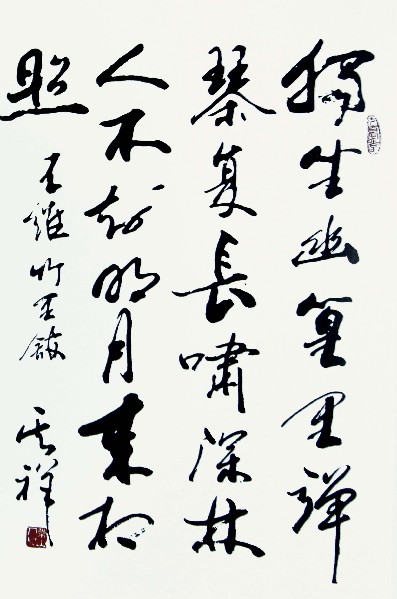 獨坐幽篁里彈
琴复長嘯深林
人不知明月来相
照
王維竹里館
祥